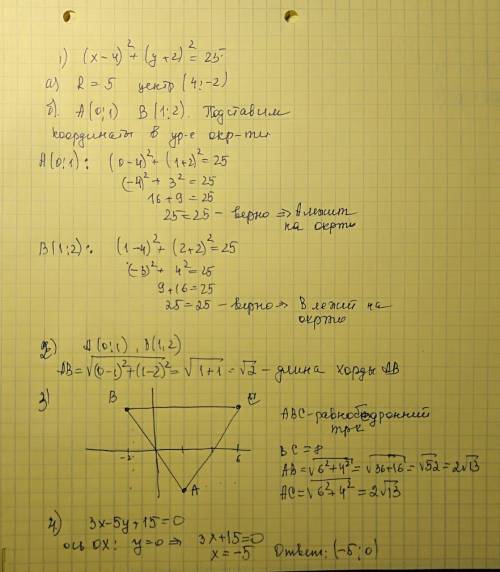 1) (x-4)² + (y+2)² = 25
а) R = 5 центр (4; -2)
б) A(0;1) B(1;2). Подставим
координаты в ур-е окр-ти
A(0;1): (0-4)² + (1+2)² = 25
(-4)² + 3² = 25
16 + 9 = 25
25 = 25 - верно => В лежит
на окр-ти
B(1;2): (1-4)² + (2+2)² = 25
(-3)² + 4² = 25
9 + 16 = 25
25 = 25 - верно => В лежит на
окр-ти
2) A(0;1), B(1,2)
AB = √(0-1)²+(1-2)² = √1+1 = √2 - длина хорды AB
3)
B
C
-2
6
A
ABC - равнобедренный
тр-к
BC = 8
AB = √6²+4² = √36+16 = √52 = 2√13
AC = √6²+4² = 2√13
4) 3x-5y+15=0
ось OX: y=0 => 3x+15=0
x = -5
Ответ: (-5; 0)